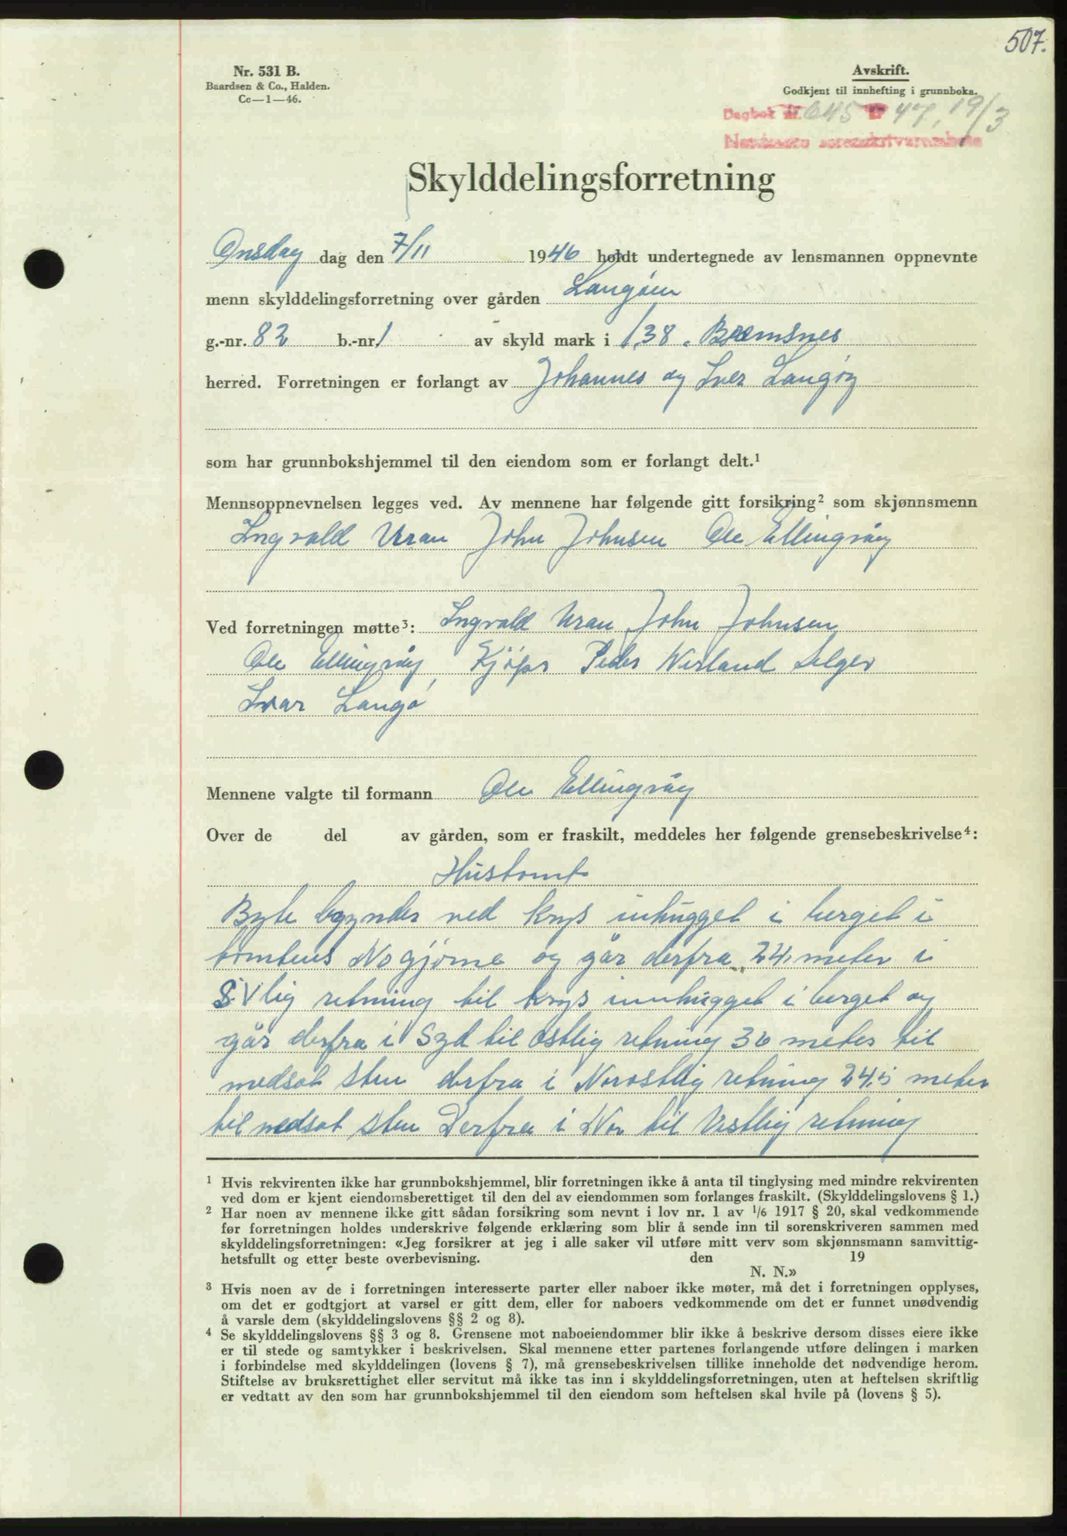 507.
Nr. 531 B.
Baardsen & Co., Halden.
Cc—1—46.
Avskrift.
Godkjent til innhefting i grunnboka.
Dagbok nr. 645 19 47, 19/3
Nordmøre sorenskriverembete
Skylddelingsforretning
Onsdag dag den 7/11 1946 holdt undertegnede av lensmannen oppnevnte
menn skylddelingsforretning over gården Langöen
g.-nr. 82 b.-nr. 1 av skyld mark i 1,38. Bremsnes
herred. Forretningen er forlangt av Johannes og Iver Langöy
som har grunnbokshjemmel til den eiendom som er forlangt delt.¹
Mennsoppnevnelsen legges ved. Av mennene har følgende gitt forsikring² som skjønnsmenn
Ingvald Vran John Johnsen Ole Ellingvåg
Ved forretningen møtte³: Ingvald Vran John Johnsen
Ole Ellingvåg, Kjöper Peder Wirland Selger
Ivar Langö
Mennene valgte til formann Ole Ellingvåg
Over de del av gården, som er fraskilt, meddeles her følgende grensebeskrivelse⁴:
Hustomt
Byte begynder ved krys inhugget i berget i
tomtens No gjörne og går derfra 24, meter i
SV lig retning til krys innhugget i berget og
går derfra i Syd til östlig retning 36 meter til
nedsat sten derfra i Norostlig retning 24.5 meter
til nedsat sten Derfra i Nor til Vestlig retning
¹ Hvis rekvirenten ikke har grunnbokshjemmel, blir forretningen ikke å anta til tinglysing med mindre rekvirenten
ved dom er kjent eiendomsberettiget til den del av eiendommen som forlanges fraskilt. (Skylddelingslovens § 1.)
² Har noen av mennene ikke gitt sådan forsikring som nevnt i lov nr. 1 av 1/6 1917 § 20, skal vedkommende
før forretningen holdes underskrive følgende erklæring som blir å sende inn til sorenskriveren sammen med
skylddelingsforretningen: «Jeg forsikrer at jeg i alle saker vil utføre mitt verv som skjønnsmann samvittig-
hetsfullt og etter beste overbevisning. den 19
N. N.»
³ Hvis noen av de i forretningen interesserte parter eller naboer ikke møter, må det i forretningen opplyses,
om det er godtgjort at varsel er gitt dem, eller for naboers vedkommende om det er funnet unødvendig
å varsle dem (skylddelingslovens §§ 2 og 8).
⁴ Se skylddelingslovens §§ 3 og 8. Grensene mot naboeiendommer blir ikke å beskrive dersom disses eiere ikke
er til stede og samtykker i beskrivelsen. Skal mennene etter partenes forlangende utføre delingen i marken
i forbindelse med skylddelingen (lovens § 7), må grensebeskrivelsen tillike inneholde det nødvendige herom.
Stiftelse av bruksrettighet eller servitut må ikke tas inn i skylddelingsforretningen, uten at heftelsen skriftlig
er vedtatt av den som har grunnbokshjemmel til den eiendom som heftelsen skal hvile på (lovens § 5).